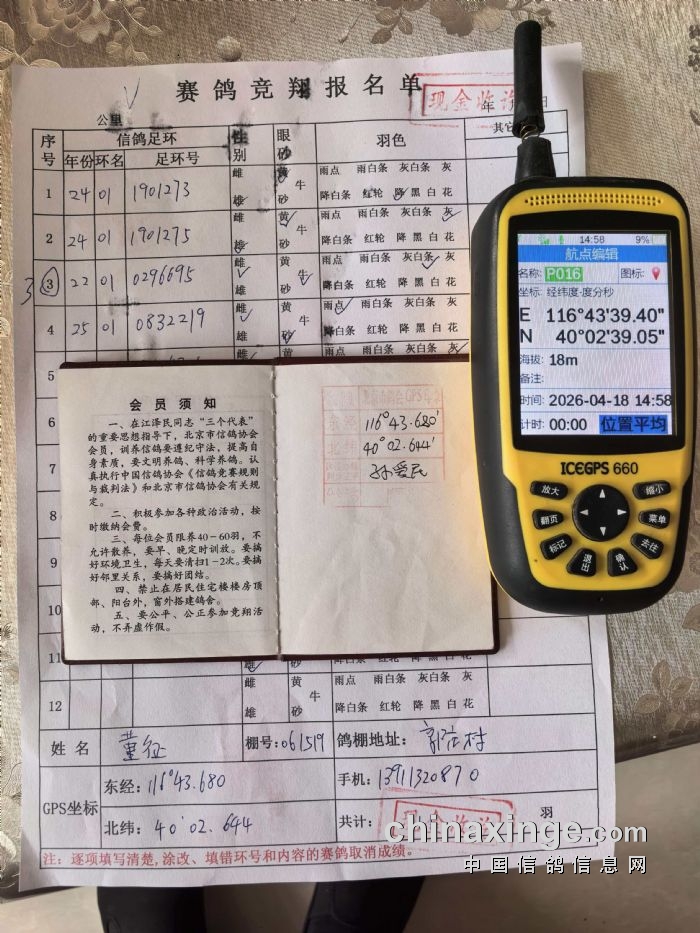 赛鸽竞翔报名单
现金收讫
年 日
公里
序号 信鸽足环 性别 眼砂 羽色 其它
年份 环名 足环号
雌 黄 雨点 雨白条 灰白条 灰
1 24 01 1901273 牛
雄 砂 降白条 红轮 降 黑 白 花
雌 黄 雨点 雨白条 灰白条 灰
2 24 01 1901275 牛
雄 砂 降白条 红轮 降 黑 白 花
雌 黄 雨点 雨白条 灰白条 灰
3 3 22 01 0296695 牛
雄 砂 降白条 红轮 降 黑 白 花
雌 黄 雨点 雨白条 灰白条 灰
4 25 01 0832219 牛
雄 砂 降白条 红轮 降 黑 白 花
5 雨点 雨白条 灰白条 灰
6
7
8
9
10
11
雌 砂 降白条 红轮 降 黑 白 花
雌 黄 雨点 雨白条 灰白条 灰
12 牛
雄 砂 降白条 红轮 降 黑 白 花
姓名 董征 棚号:061519 鸽棚地址:
GPS坐标 东经:116°43.680 手机:13911320870
北纬:40°02.644 共计: 羽
现金收讫
注:逐项填写清楚,涂改、填错环号和内容的赛鸽取消成绩。
会员须知
一、在江泽民同志“三个代表”
的重要思想指导下,北京市信鸽协会
会员,训养信鸽要遵纪守法,提高自
身素质,要文明养鸽、科学养鸽。认
真执行中国信鸽协会《信鸽竞赛规则
与裁判法》和北京市信鸽协会有关规
定。
二、积极参加各种政治活动,按
时缴纳会费。
三、每位会员限养40-60羽,不
允许散养,要早、晚定时训放。要搞
好环境卫生,每天要清扫1-2次。要搞
好邻里关系,要搞好团结。
四、禁止在居民住宅楼楼房顶
部、阳台外,窗外搭建鸽舍。
五、要公平、公正参加竞翔活
动,不弄虚作假。
东经 116°43.680'
北纬 40°02.644'
孙爱民
14:58 9%
航点编辑
名称: P016 图标:
坐标: 经纬度-度分秒
E 116°43'39.40"
N 40°02'39.05"
海拔: 18m
备注:
时间: 2026-04-18 14:58
计时: 00:00 位置平均
ICEGPS 660
放大 缩小
翻页 菜单
标记 去往
退出 确认
chinaxinge.com
中国信鸽信息网